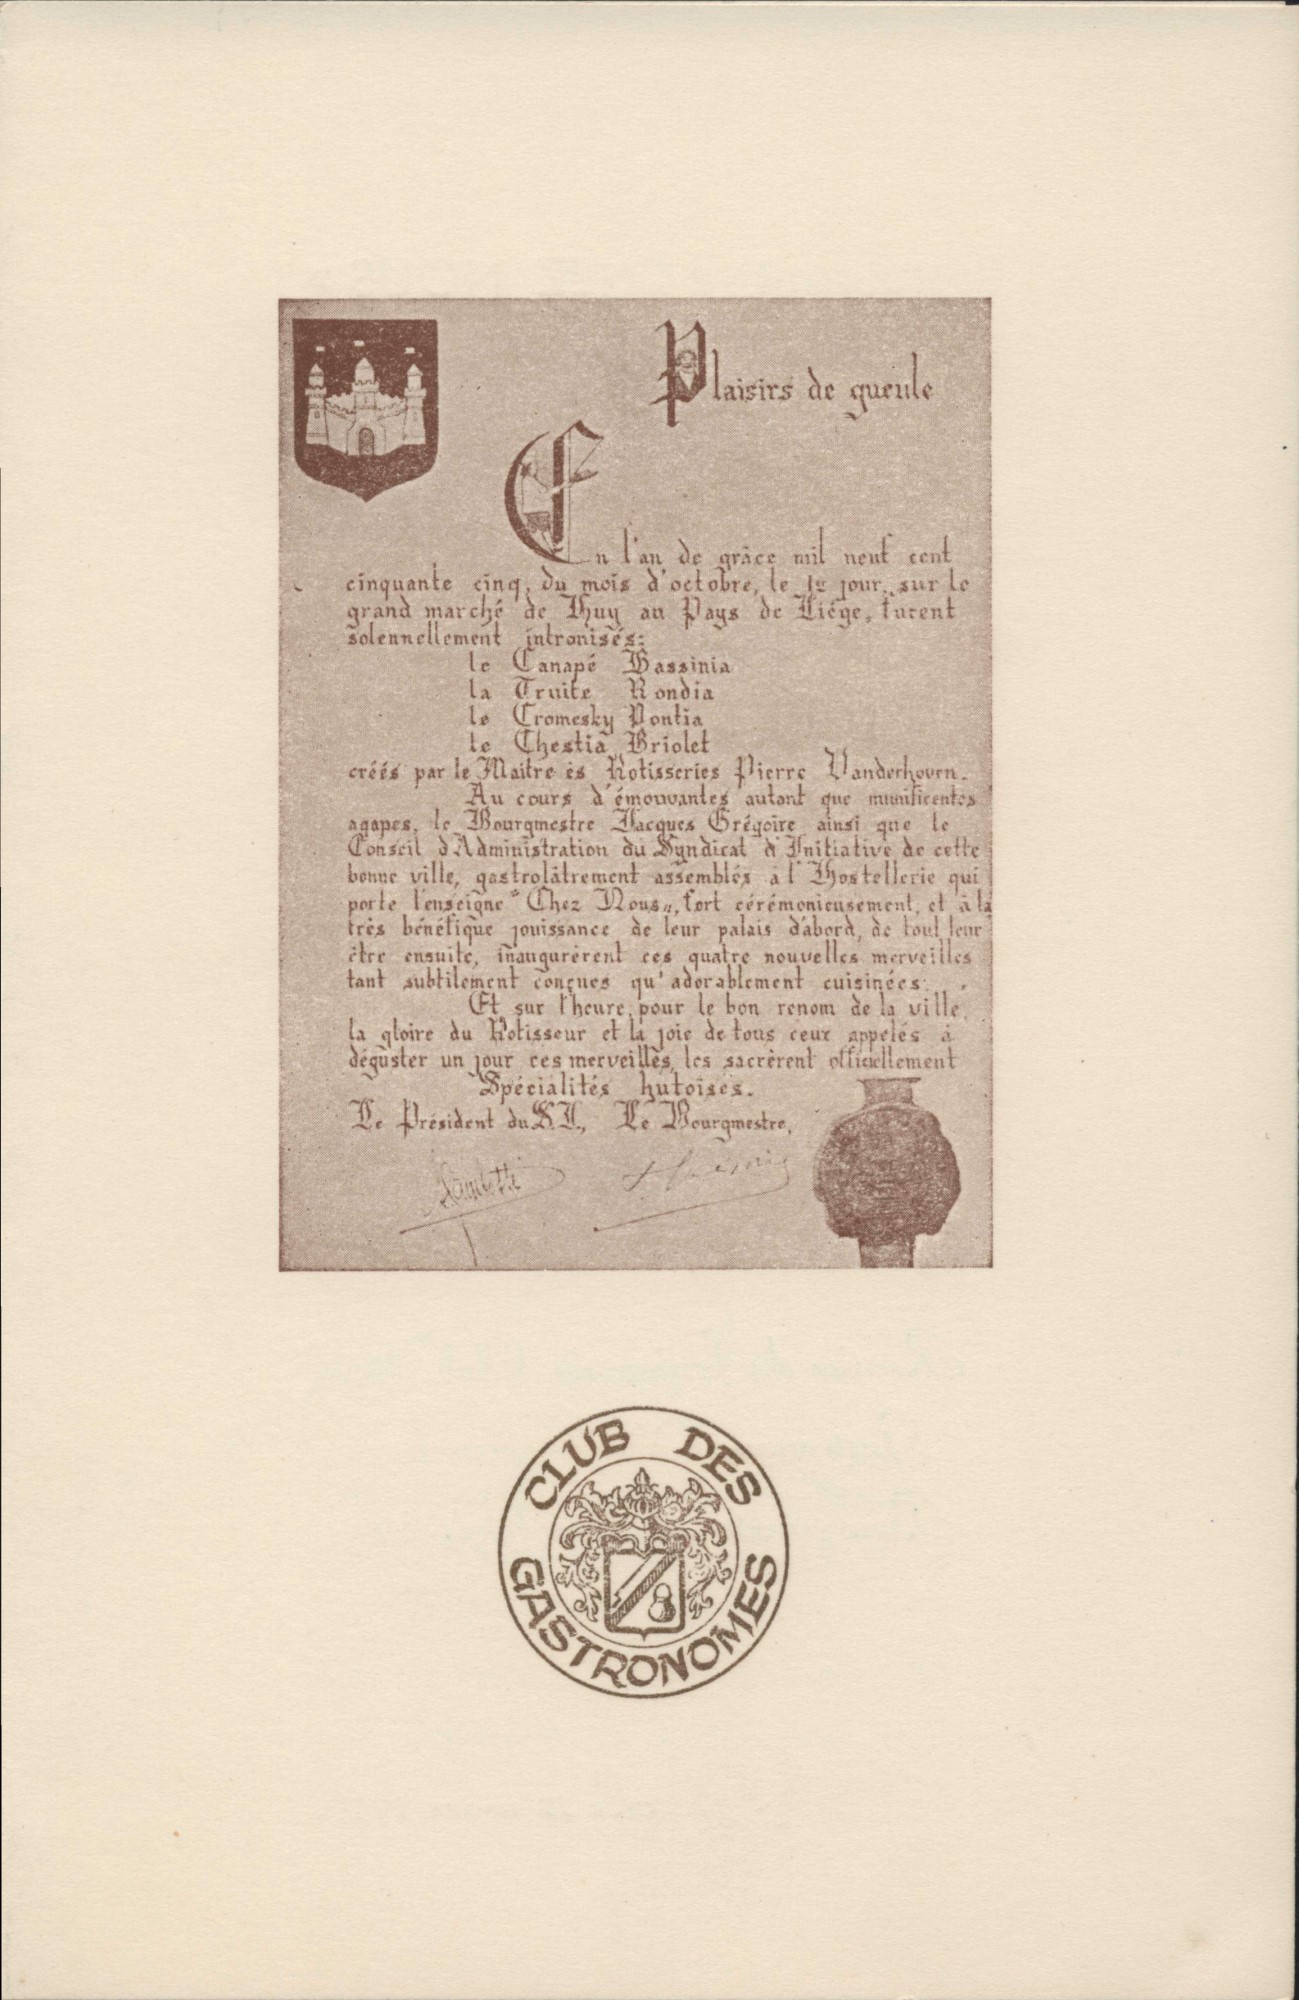 Plaisirs de gueule
En l'an de grâce mil neuf cent
cinquante cinq, du mois d'octobre, le 1er jour, sur le
grand marché de Huy au Pays de Liége, furent
solennellement intronisés:
le Canapé Bassinia
la Truite Rondia
le Cromesky Pontia
le Chestia Briolet
créés par le Maître ès Rotisseries Pierre Vanderhoven.
Au cours d'émouvantes autant que munificentes
agapes, le Bourgmestre Jacques Grégoire ainsi que le
Conseil d'Administration du Syndicat d'Initiative de cette
bonne ville, gastrolâtrement assemblés à l'Hostellerie qui
porte l'enseigne "Chez Nous", fort cérémonieusement, et à la
très bénéfique jouissance de leur palais d'abord, de tout leur
être ensuite, inaugurèrent ces quatre nouvelles merveilles
tant subtilement conçues qu'adorablement cuisinées.
Et sur l'heure, pour le bon renom de la ville,
la gloire du Rotisseur et la joie de tous ceux appelés à
déguster un jour ces merveilles, les sacrèrent officiellement
Spécialités hutoises.
Le Président du S.I., Le Bourgmestre,
CLUB DES
GASTRONOMES